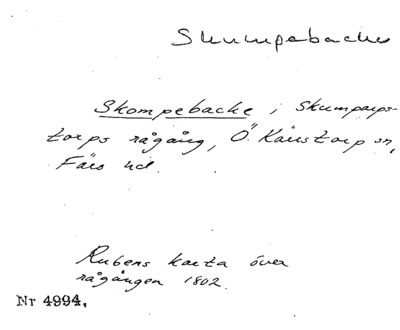 Skumpebacke
Skompebacke i Skumparps-
torps rågång, Ö. Kärstorp sn,
Färs hd.
Rubens karta över
rågången 1802.
Nr 4994.